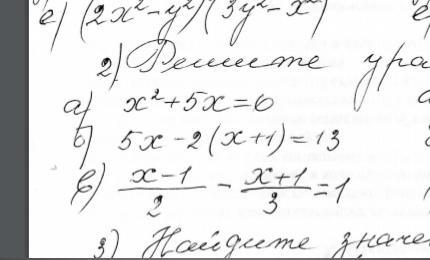 е) (2x²-y²)(3y²-x²)
2) Решите
а) x²+5x=6
б) 5x-2(x+1)=13
в) (x-1)/2 - (x+1)/3 = 1
3) Найдите